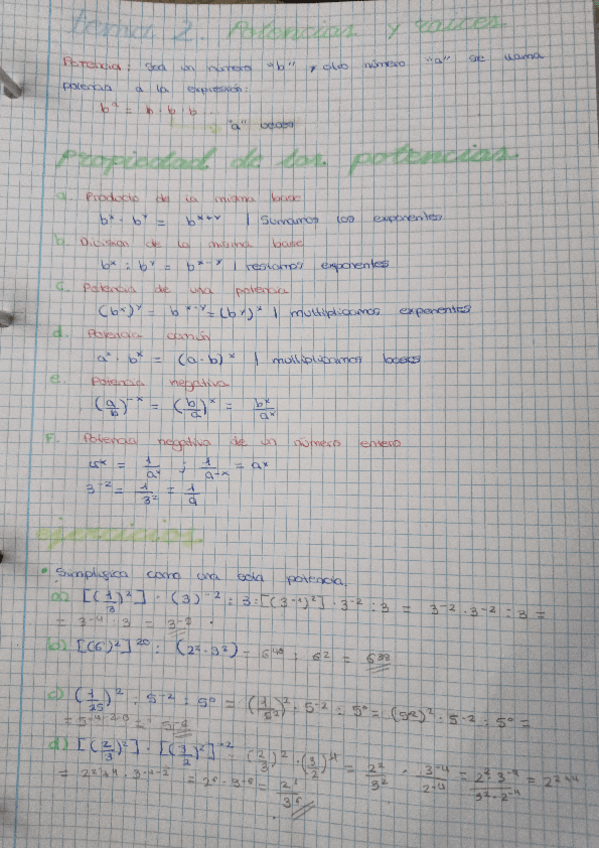 tema 2. Potencias y raíces
Potencia: Sea un número "b" y otro número "a" se llama
potencia a la expresión:
bᵃ = b · b · b ...
"a" veces
Propiedad de las potencias
a. Producto de la misma base
bˣ · bʸ = bˣ⁺ʸ | Sumamos los exponentes
b. Division de la misma base
bˣ : bʸ = bˣ⁻ʸ | restamos exponentes
c. Potencia de una potencia
| multiplicamos exponentes
d. Potencia común
aˣ · bˣ = (a·b)ˣ | multiplicamos bases
e. Potencia negativa
(a/b)⁻ˣ = (b/a)ˣ = bˣ/aˣ
f. Potencia negativa de un número entero
= 1/aˣ ; 1/a⁻ˣ = aˣ
3⁻² = 1/3² = 1/9
ejercicios
• Simplifica como una sola potencia.
a) [(1/3)²] · (3)⁻² : 3 = [(3⁻¹)²] · 3⁻² : 3 = 3⁻² · 3⁻² : 3 =
= 3⁻⁴ : 3 =
b) [(6)²]²⁰ : (2² · 3²) = 6⁴⁰ : 6² = 6³⁸
c) (1/25)² · 5⁻² : 5⁰ = (1/5²)² · 5⁻² : 5⁰ = (5²)² · 5⁻² : 5⁰ =
d) [(2/3)²] · [(3/2)²]⁻²